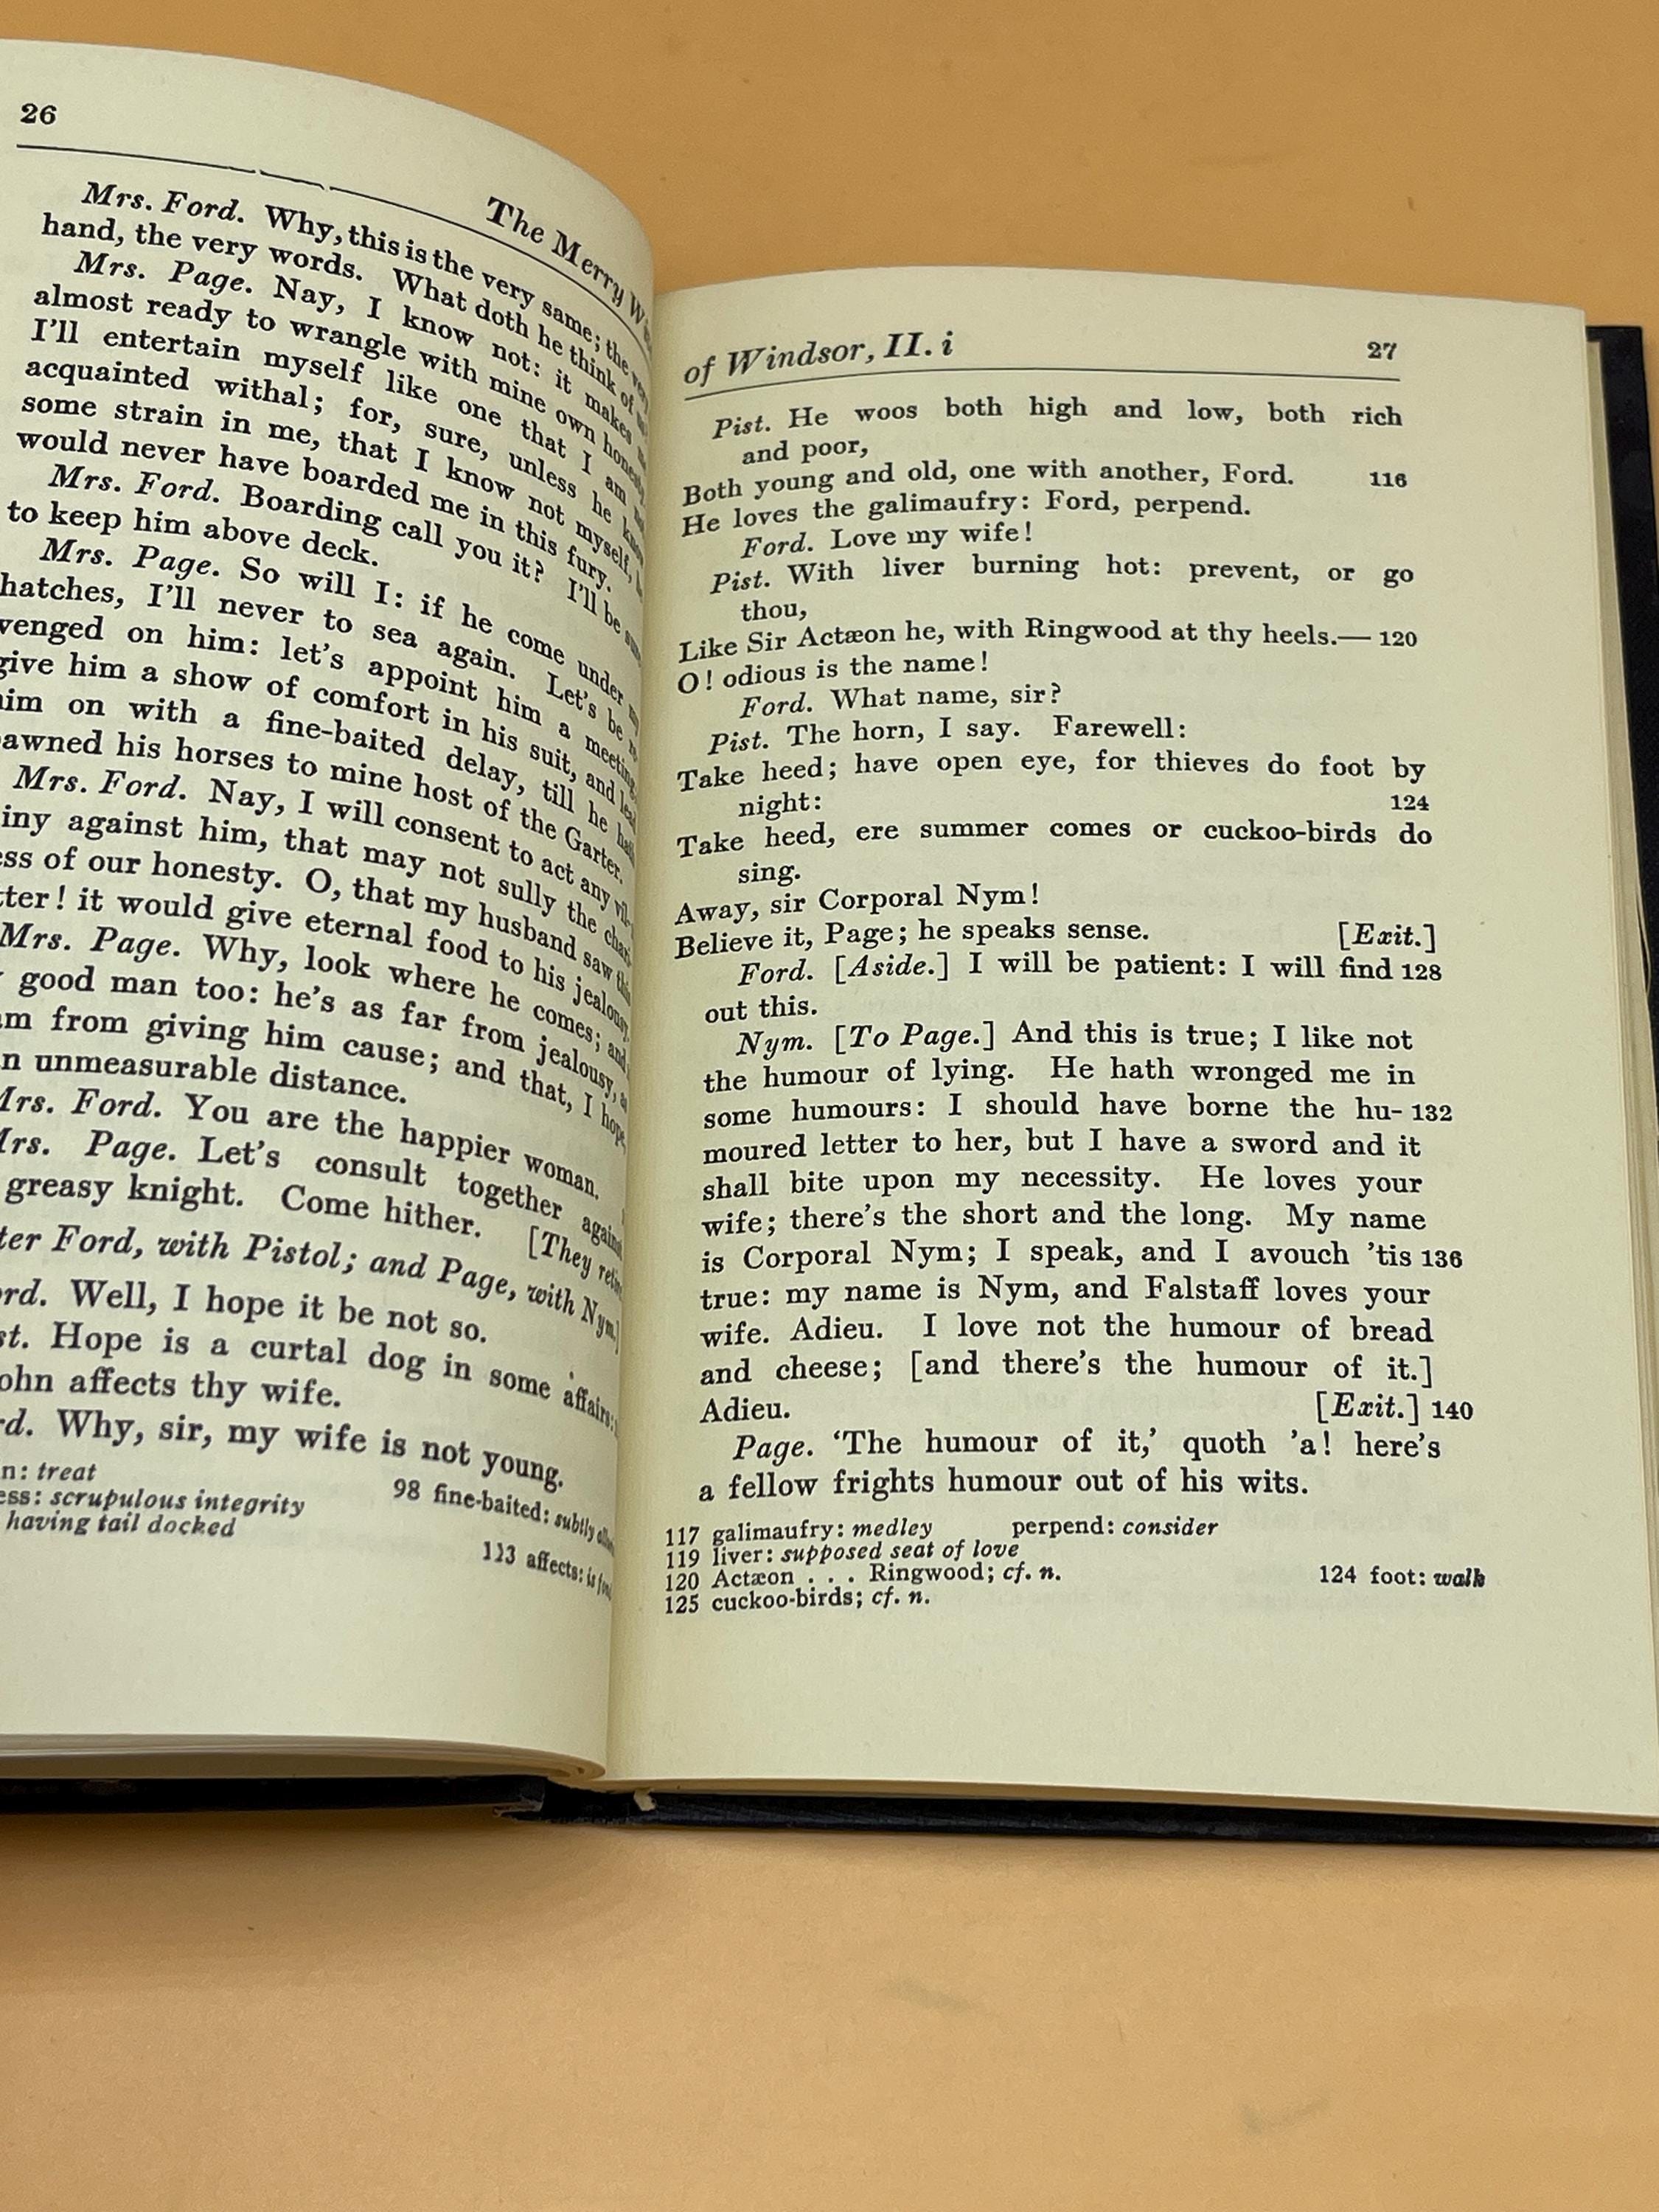 26
The Merry
Mrs. Ford. Why, this is the very same; the
hand, the very words. What doth he think of
Mrs. Page. Nay, I know not: it makes
almost ready to wrangle with mine own honesty.
I'll entertain myself like one that I am
acquainted withal; for, sure, unless he
some strain in me, that I know not myself,
would never have boarded me in this fury.
Mrs. Ford. Boarding call you it? I'll be
to keep him above deck.
Mrs. Page. So will I: if he come under
hatches, I'll never to sea again. Let's be
venged on him: let's appoint him a meeting,
give him a show of comfort in his suit, and
on with a fine-baited delay, till he
his horses to mine host of the Garter.
Mrs. Ford. Nay, I will consent to act any
iny against him, that may not sully the
ess of our honesty. O, that my husband saw this
tter! it would give eternal food to his jealousy.
Mrs. Page. Why, look where he comes; and
good man too: he's as far from jealousy,
from giving him cause; and that, I hope,
unmeasurable distance.
Mrs. Ford. You are the happier woman.
Mrs. Page. Let's consult together against
greasy knight. Come hither. [They
ter Ford, with Pistol; and Page, with Nym.]
ord. Well, I hope it be not so.
st. Hope is a curtal dog in some affairs:
ohn affects thy wife.
rd. Why, sir, my wife is not young.
n: treat
ess: scrupulous integrity 98 fine-baited: subtly
having tail docked 113 affects: is
of Windsor, II. i 27
Pist. He woos both high and low, both rich
and poor,
Both young and old, one with another, Ford. 116
He loves the galimaufry: Ford, perpend.
Ford. Love my wife!
Pist. With liver burning hot: prevent, or go
thou,
Like Sir Actæon he, with Ringwood at thy heels.— 120
O! odious is the name!
Ford. What name, sir?
Pist. The horn, I say. Farewell:
Take heed; have open eye, for thieves do foot by
night: 124
Take heed, ere summer comes or cuckoo-birds do
sing.
Away, sir Corporal Nym!
Believe it, Page; he speaks sense. [Exit.]
Ford. [Aside.] I will be patient: I will find 128
out this.
Nym. [To Page.] And this is true; I like not
the humour of lying. He hath wronged me in
some humours: I should have borne the hu- 132
moured letter to her, but I have a sword and it
shall bite upon my necessity. He loves your
wife; there's the short and the long. My name
is Corporal Nym; I speak, and I avouch 'tis 136
true: my name is Nym, and Falstaff loves your
wife. Adieu. I love not the humour of bread
and cheese; [and there's the humour of it.]
Adieu. [Exit.] 140
Page. 'The humour of it,' quoth 'a! here's
a fellow frights humour out of his wits.
117 galimaufry: medley perpend: consider
119 liver: supposed seat of love
120 Actæon . . . Ringwood; cf. n. 124 foot: walk
125 cuckoo-birds; cf. n.